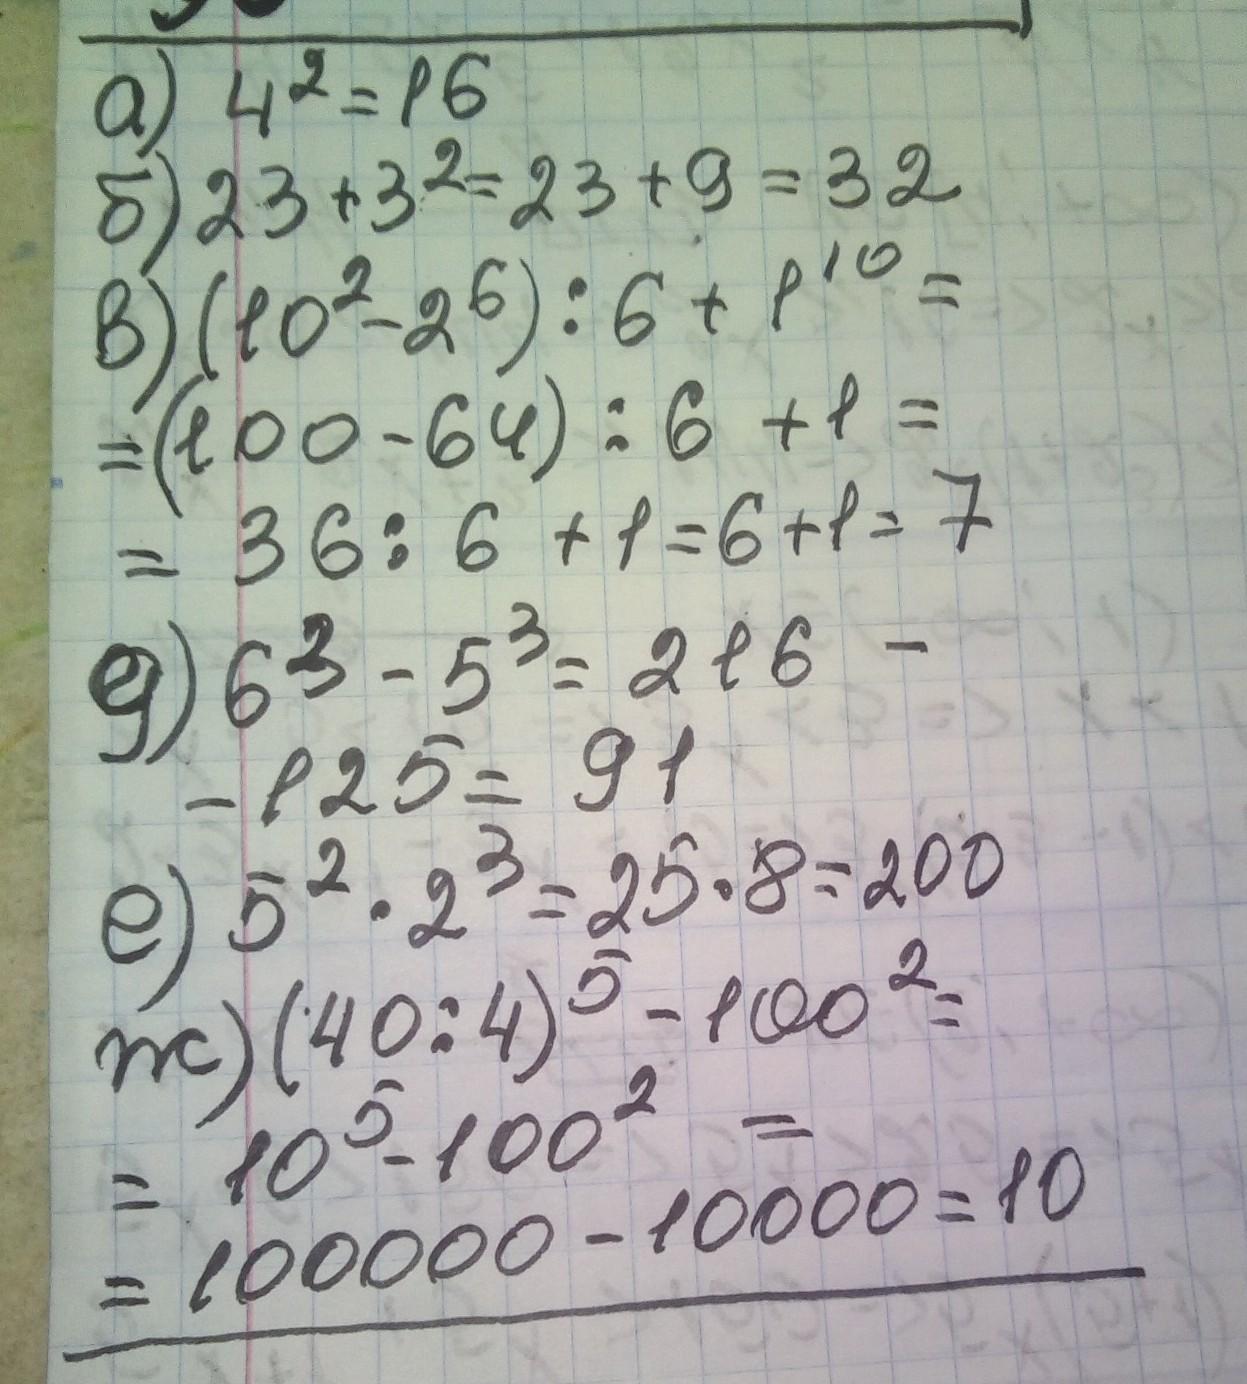 а) 4² = 16
б) 23 + 3² = 23 + 9 = 32
в) (10² - 2⁶) : 6 + 1¹⁰ =
= (100 - 64) : 6 + 1 =
= 36 : 6 + 1 = 6 + 1 = 7
д) 6³ - 5³ = 216 -
- 125 = 91
е) 5² · 2³ = 25 · 8 = 200
ж) (40 : 4)⁵ - 100² =
= 10⁵ - 100² =
= 100000 - 10000 = 10